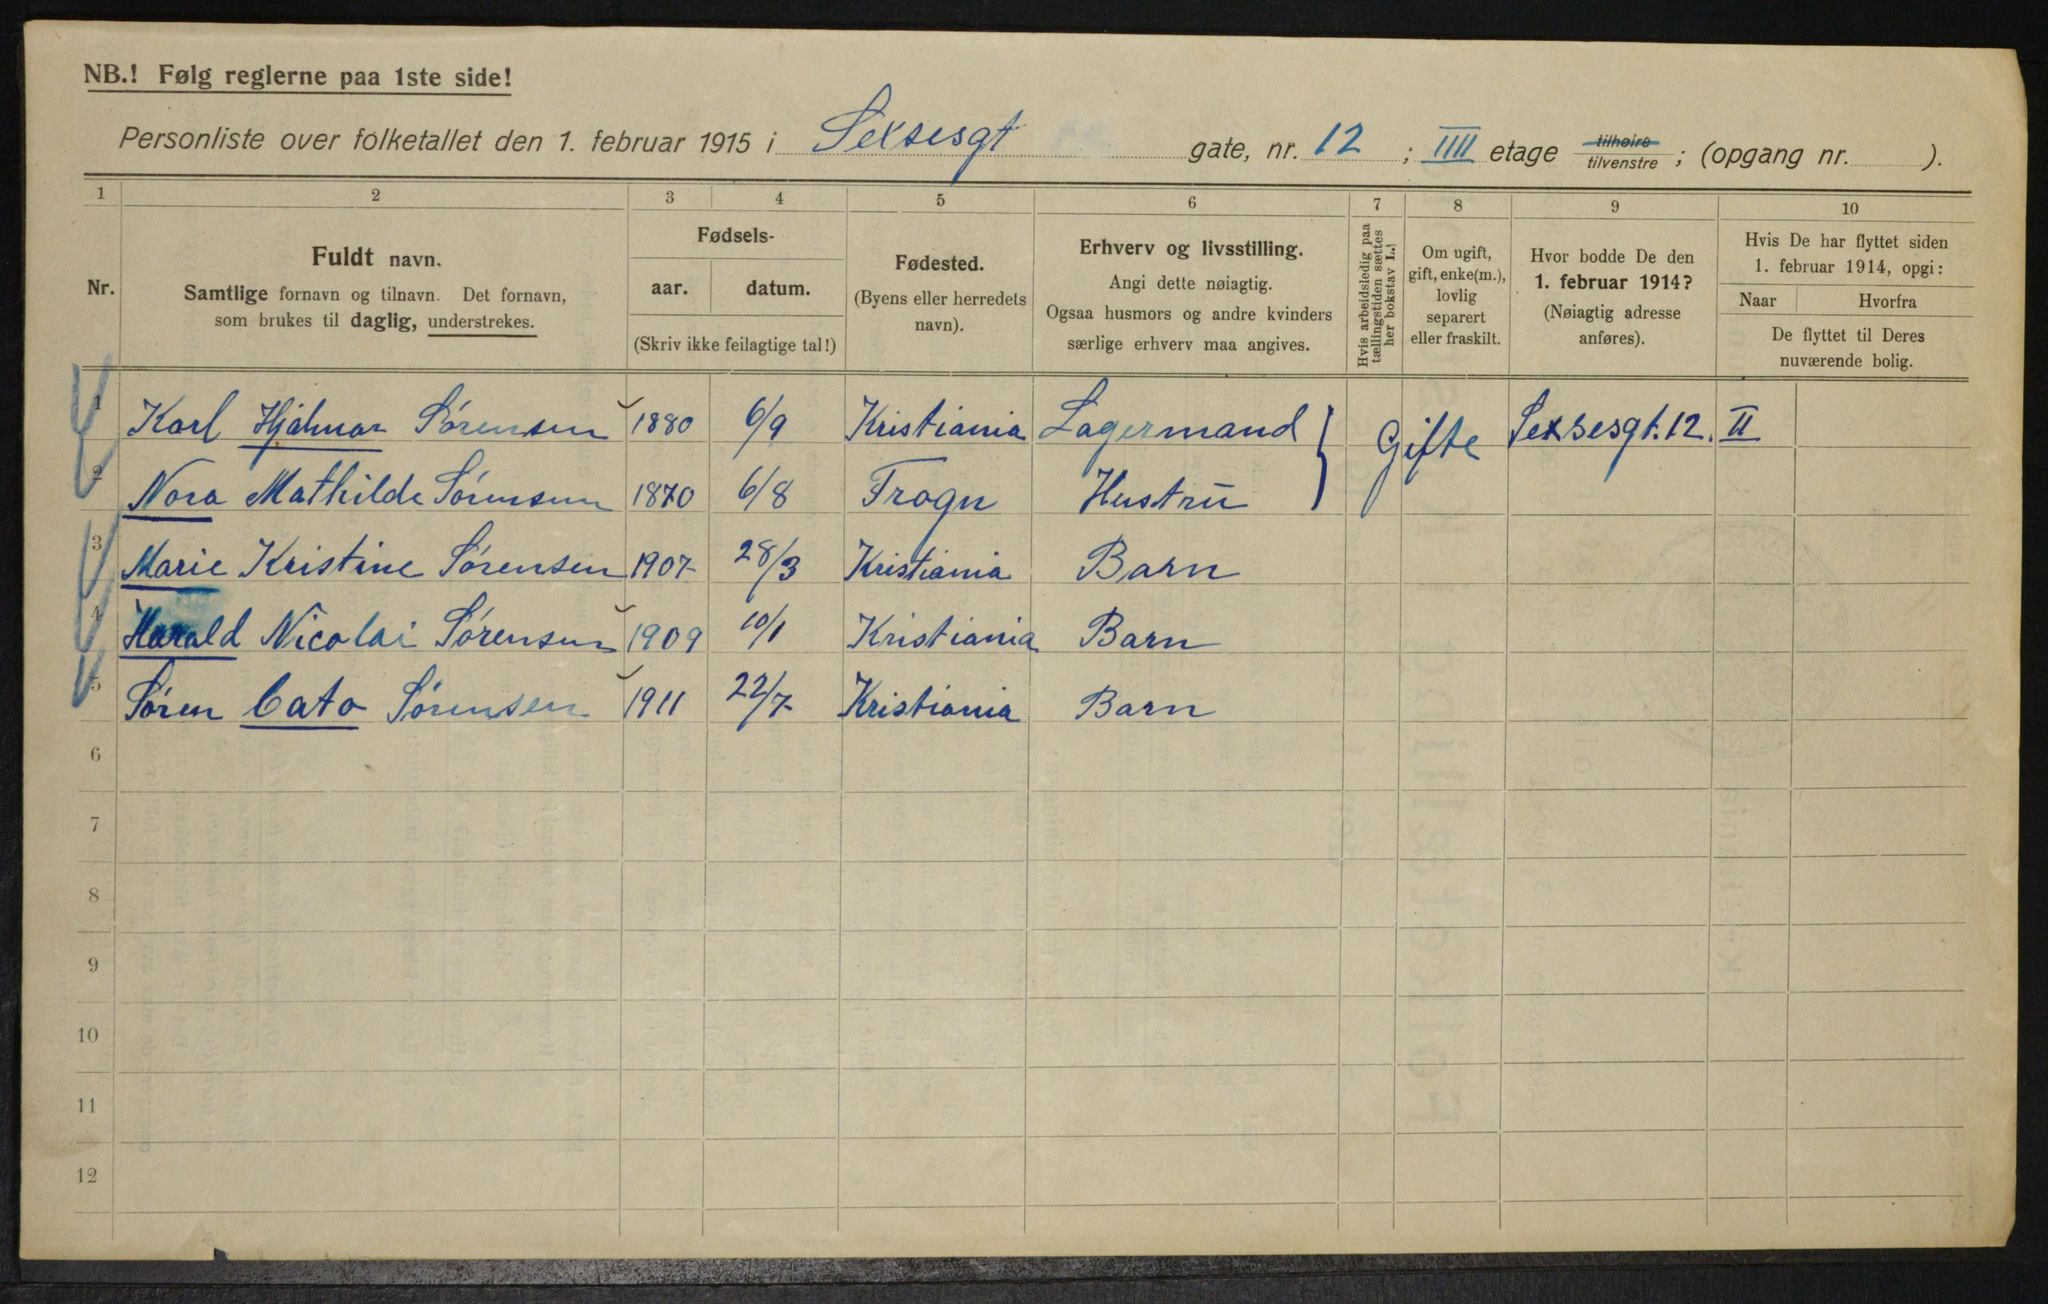 NB.! Følg reglerne paa 1ste side!
Personliste over folketallet den 1. februar 1915 i Sexsesgt gate, nr. 12 ; IIII etage tilhøire tilvenstre ; (opgang nr. ).
1 2 3 4 5 6 7 8 9 10
Nr.
Fuldt navn.
Samtlige fornavn og tilnavn. Det fornavn,
som brukes til daglig, understrekes.
Fødsels-
aar. datum.
(Skriv ikke feilagtige tal!)
Fødested.
(Byens eller herredets
navn).
Erhverv og livsstilling.
Angi dette nøiagtig.
Ogsaa husmors og andre kvinders
særlige erhverv maa angives.
Hvis arbeidsledig paa
tællingstiden sættes
her bokstav L.!
Om ugift,
gift, enke(m.),
lovlig
separert
eller fraskilt.
Hvor bodde De den
1. februar 1914?
(Nøiagtig adresse
anføres).
Hvis De har flyttet siden
1. februar 1914, opgi:
Naar Hvorfra
De flyttet til Deres
nuværende bolig.
1 Karl Hjalmar Sørensen 1880 6/9 Kristiania Lagermand } Gifte Sexsesgt. 12. II
2 Nora Mathilde Sørensen 1870 6/8 Frogn Hustru
3 Marie Kristine Sørensen 1907 28/3 Kristiania Barn
4 Harald Nicolai Sørensen 1909 10/1 Kristiania Barn
5 Søren Cato Sørensen 1911 22/7 Kristiania Barn
6
7
8
9
10
11
12